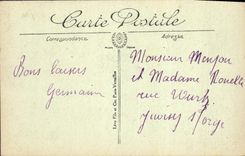 Carte Postale
Correspondance
Adresse
Bons baisers
Germaine
Monsieur Menjou
et Madame Rouelle
rue Wurtz
Juvisy s/Orge